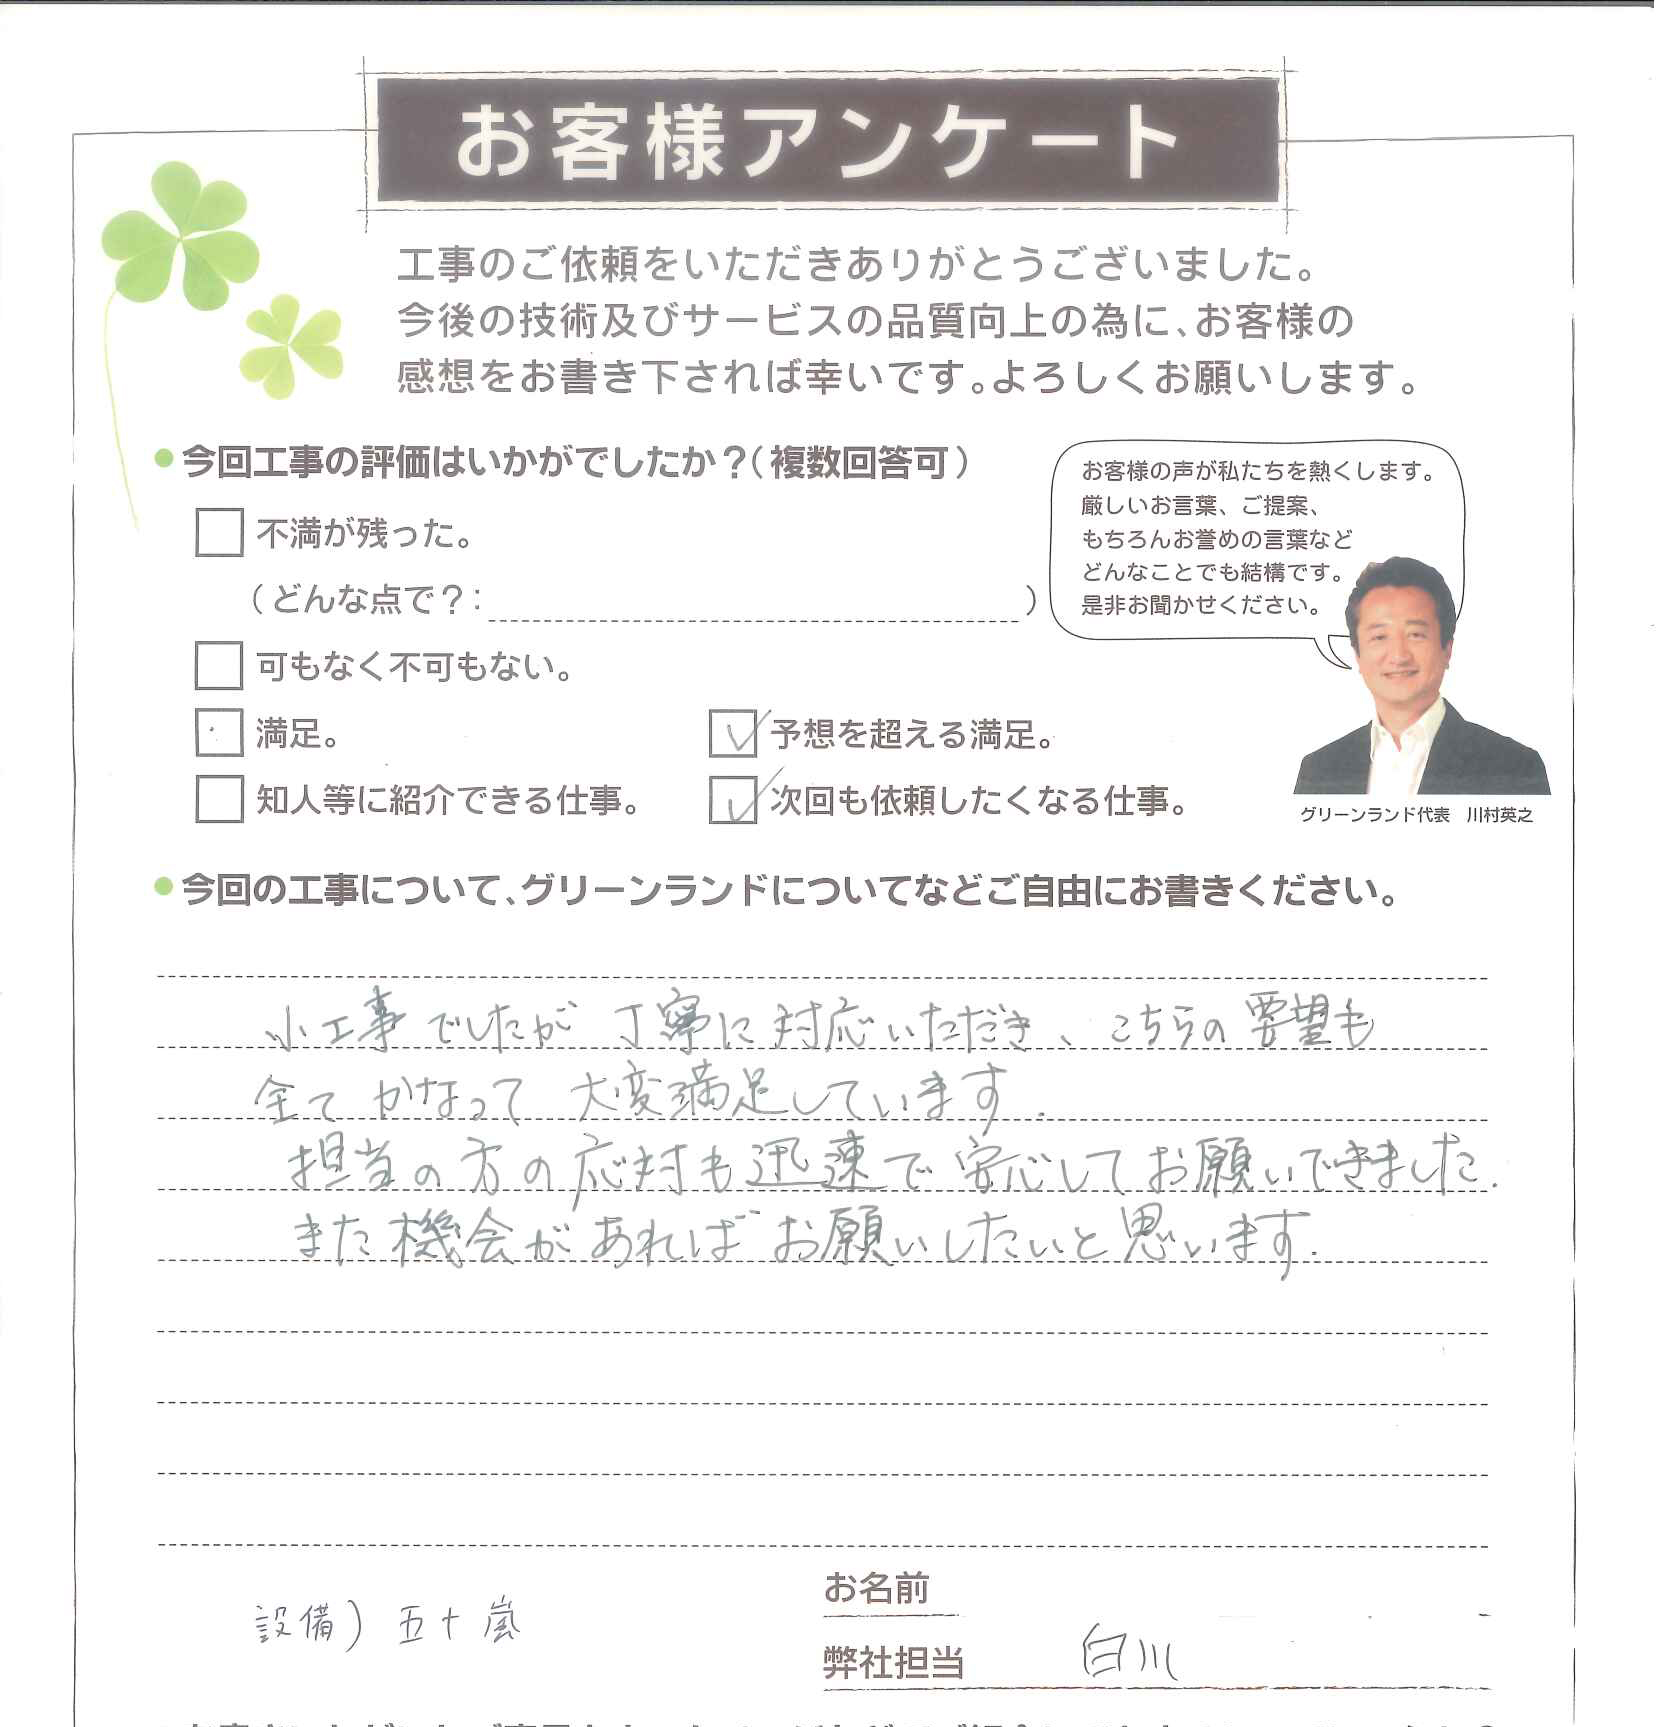 お客様アンケート
工事のご依頼をいただきありがとうございました。
今後の技術及びサービスの品質向上の為に、お客様の
感想をお書き下されば幸いです。よろしくお願いします。
●今回工事の評価はいかがでしたか？（複数回答可）
不満が残った。
（どんな点で？：　）
可もなく不可もない。
満足。
予想を超える満足。
知人等に紹介できる仕事。
次回も依頼したくなる仕事。
お客様の声が私たちを熱くします。
厳しいお言葉、ご提案、
もちろんお誉めの言葉など
どんなことでも結構です。
是非お聞かせください。
グリーンランド代表　川村英之
●今回の工事について、グリーンランドについてなどご自由にお書きください。
小工事でしたが 丁寧に対応いただき、こちらの要望も
全て かなって 大変満足しています.
担当の方の応対も迅速で安心してお願いできました.
また機会があればお願いしたいと思います.
設備）五十嵐
お名前
弊社担当 白川